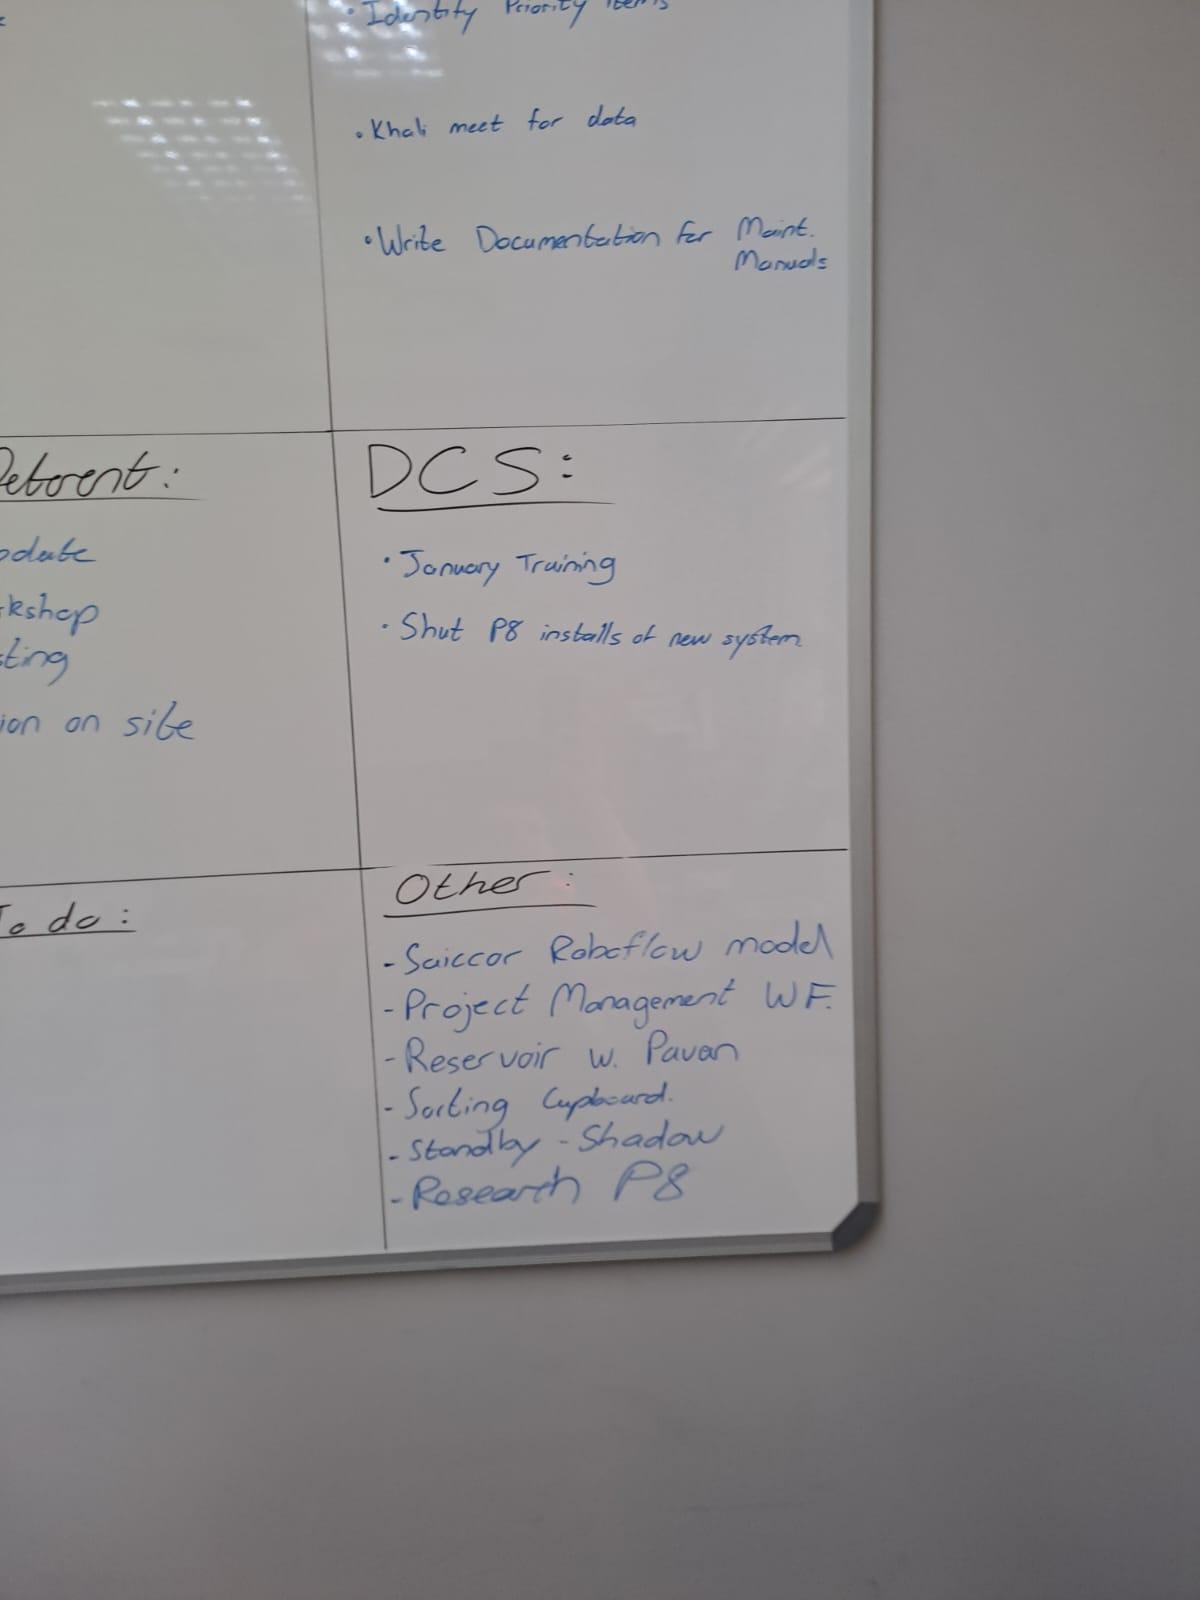 • Identify Priority items
• Khali meet for data
• Write Documentation for Maint.
Manuals
DCS:
• January Training
• Shut P8 installs of new system
on site
To do:
Other:
- Saiccor Roboflow model
- Project Management WF.
- Reservoir w. Pavan
- Sorting Cupboard.
- Standby - Shadow
- Research P8